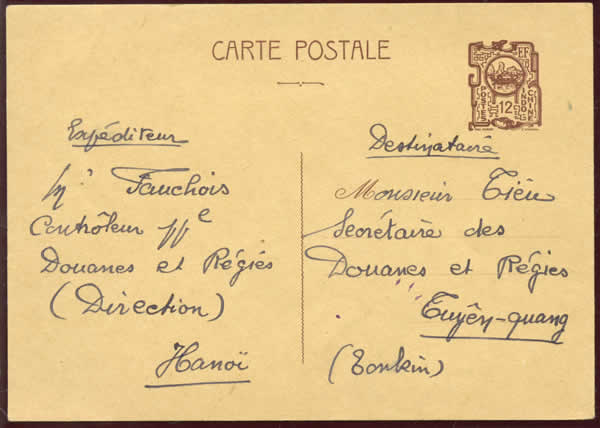 CARTE POSTALE
RF
POSTES
INDO
CHINE
12
Expéditeur
Mr. Fauchois
Contrôleur ppe
Douanes et Régies
(Direction)
Hanoï
Destinataire
Monsieur Tiêu
Secrétaire des
Douanes et Régies
Tuyên-quang
(Tonkin)